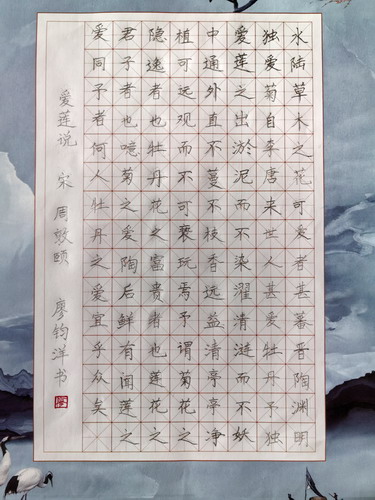 水陆草木之花可爱者甚蕃晋陶渊明
独爱菊自李唐来世人甚爱牡丹予独
爱莲之出淤泥而不染濯清涟而不妖
中通外直不蔓不枝香远益清亭亭净
植可远观而不可亵玩焉予谓菊花之
隐逸者也牡丹花之富贵者也莲花之
君子者也噫菊之爱陶后鲜有闻莲之
爱同予者何人牡丹之爱宜乎众矣
爱莲说 宋 周敦颐 廖钧洋书